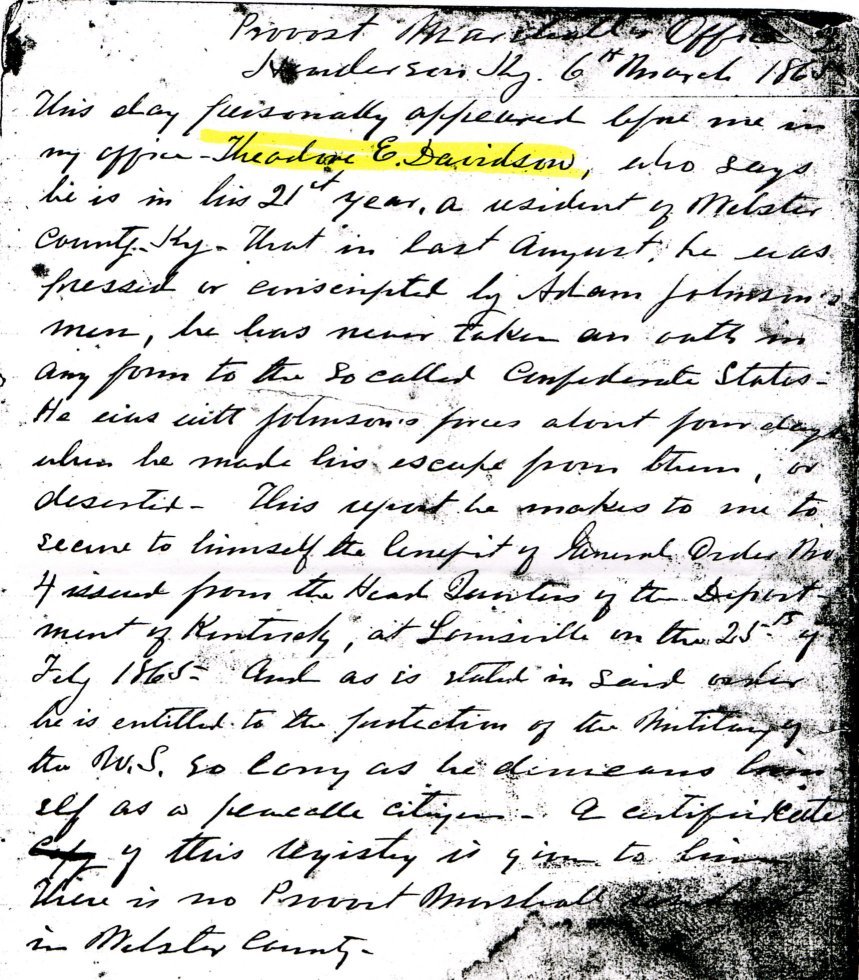 Provost Marshall's Office
Henderson Ky. 6th March 1865
This day personally appeared before me in
my office - Theodore E. Davidson, who says
he is in his 21st year, a resident of Webster
County - Ky - That in last August, he was
pressed or conscripted by Adam Johnson's
men, he has never taken an oath in
any form to the so called Confederate States -
He was with Johnson's forces about four days
when he made his escape from them, or
deserted - This report he makes to me to
secure to himself the benefit of General Order No
4 issued from the Head Quarters of the Depart-
ment of Kentucky, at Louisville on the 25th of
Feby 1865 - And as is stated in said order
he is entitled to the protection of the Military of
the U.S. so long as he demeans him
self as a peacable citizen - A certificate
of this registry is given to him
There is no Provost Marshall
in Webster County -